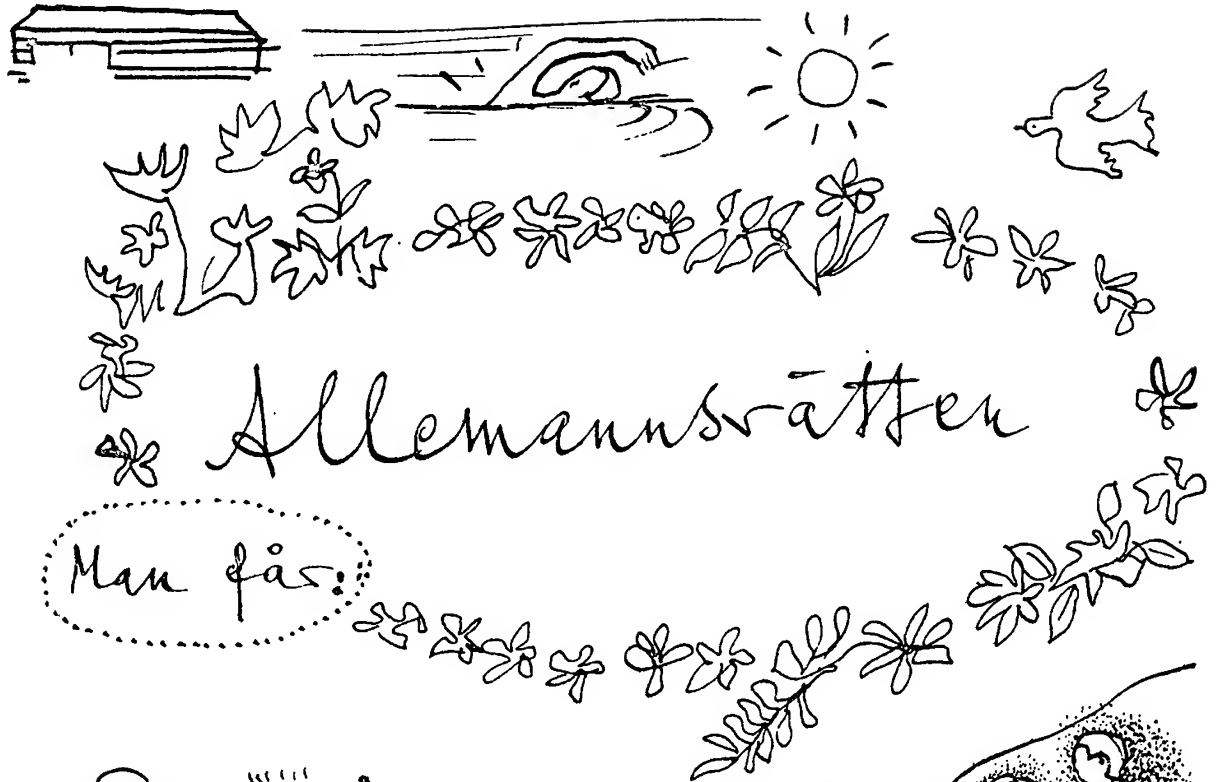 Allemannsrätten
Man får: